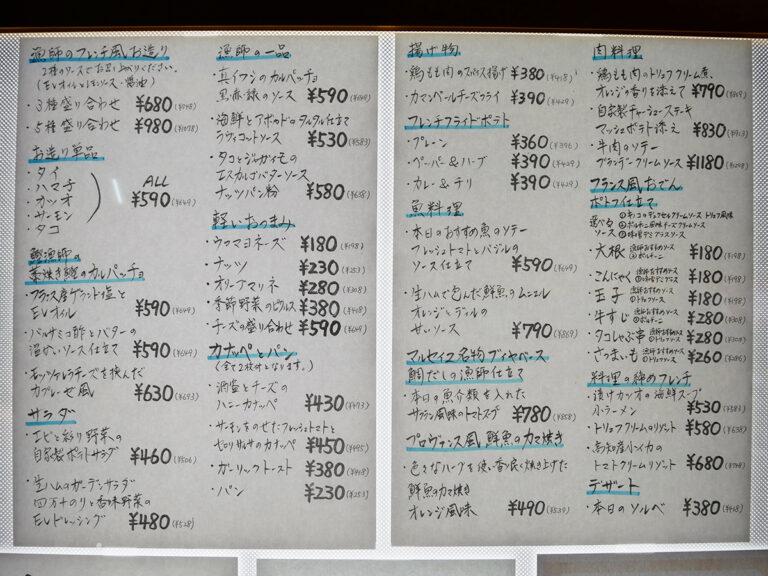 漁師のフレンチ風お造り
2種のソースでお召し上がりください。
(EVオイルとレモンソース・醤油)
・3種盛り合わせ ¥680(¥748)
・5種盛り合わせ ¥980(¥1078)
お造り単品
・タイ
・ハマチ
・カツオ
・サーモン
・タコ
ALL
¥590(¥649)
鰹漁師の
藁焼き鰹のカルパッチョ
・フランス産ゲランド塩と
EVオイル ¥590(¥649)
・バルサミコ酢とバターの
温かいソース仕立て ¥590(¥649)
・モッツァレラチーズを挟んだ
カプレーゼ風 ¥630(¥693)
サラダ
・エビと彩り野菜の
自家製ポテトサラダ ¥460(¥506)
・生ハムのガーデンサラダ
四万十のりと香味野菜の
EVドレッシング ¥480(¥528)
漁師の一品
・真イワシのカルパッチョ
黒赤銀のソース ¥590(¥649)
・海鮮とアボカドのタルタル仕立て
ラヴィゴットソース ¥530(¥583)
・タコとジャガイモの
エスカルゴバターソース
ナッツパン粉 ¥580(¥638)
軽いおつまみ
・ウフマヨネーズ ¥180(¥198)
・ナッツ ¥230(¥253)
・オリーブマリネ ¥280(¥308)
・季節野菜のピクルス ¥380(¥418)
・チーズの盛り合わせ ¥590(¥649)
カナッペとパン
(全て2枚付となります。)
・酒盗とチーズの
ハニーカナッペ ¥430(¥473)
・サーモンをのせたフレッシュトマトと
セロリサルサのカナッペ ¥450(¥495)
・ガーリックトースト ¥380(¥418)
・パン ¥230(¥253)
揚げ物
・鶏もも肉のスパイス揚げ ¥380(¥418)
・カマンベールチーズフライ ¥390(¥429)
フレンチフライドポテト
・プレーン ¥360(¥396)
・ペッパー&ハーブ ¥390(¥429)
・カレー&チリ ¥390(¥429)
魚料理
・本日のおすすめ魚のソテー
フレッシュトマトとバジルの
ソース仕立て ¥590(¥649)
・生ハムで包んだ鮮魚のムニエル
オレンジとディルの
サバイソース ¥790(¥869)
マルセイユ名物ブイヤベース
鯛だしの漁師仕立て
・本日の魚介類を入れた
サフラン風味のトマトスープ ¥780(¥858)
プロヴァンス風 鮮魚のカマ焼き
・色々なハーブを使い香り良く焼き上げた
鮮魚のカマ焼き
オレンジ風味 ¥490(¥539)
肉料理
・鶏もも肉のトリュフクリーム煮、
オレンジの香りを添えて ¥790(¥869)
・自家製チャーシューステーキ
マッシュポテト添え ¥830(¥913)
・牛肉のソテー
ブランデークリームソース ¥1180(¥1298)
フランス風おでん
ポトフ仕立て
選べる
ソース
①キノコのデュクセルクリームソース トリュフ風味
②ポルチーニ風味チーズクリームソース
③味噌デミグラスソース
・大根 漁師おすすめソース ②ポルチーニ ¥180(¥198)
・こんにゃく 漁師おすすめソース ③味噌デミグラス ¥180(¥198)
・玉子 漁師おすすめソース ①トリュフソース ¥180(¥198)
・牛すじ 漁師おすすめソース ②ポルチーニ ¥280(¥308)
・タコしゃぶ串 漁師おすすめソース ①トリュフソース ¥280(¥308)
・さつまいも 漁師おすすめソース ①トリュフソース ¥260(¥286)
料理の締めフレンチ
・漬けカツオの海鮮スープ
小ラーメン ¥530(¥583)
・トリュフクリームリゾット ¥580(¥638)
・高知産小イカの
トマトクリームリゾット ¥680(¥748)
デザート
・本日のソルベ ¥380(¥418)